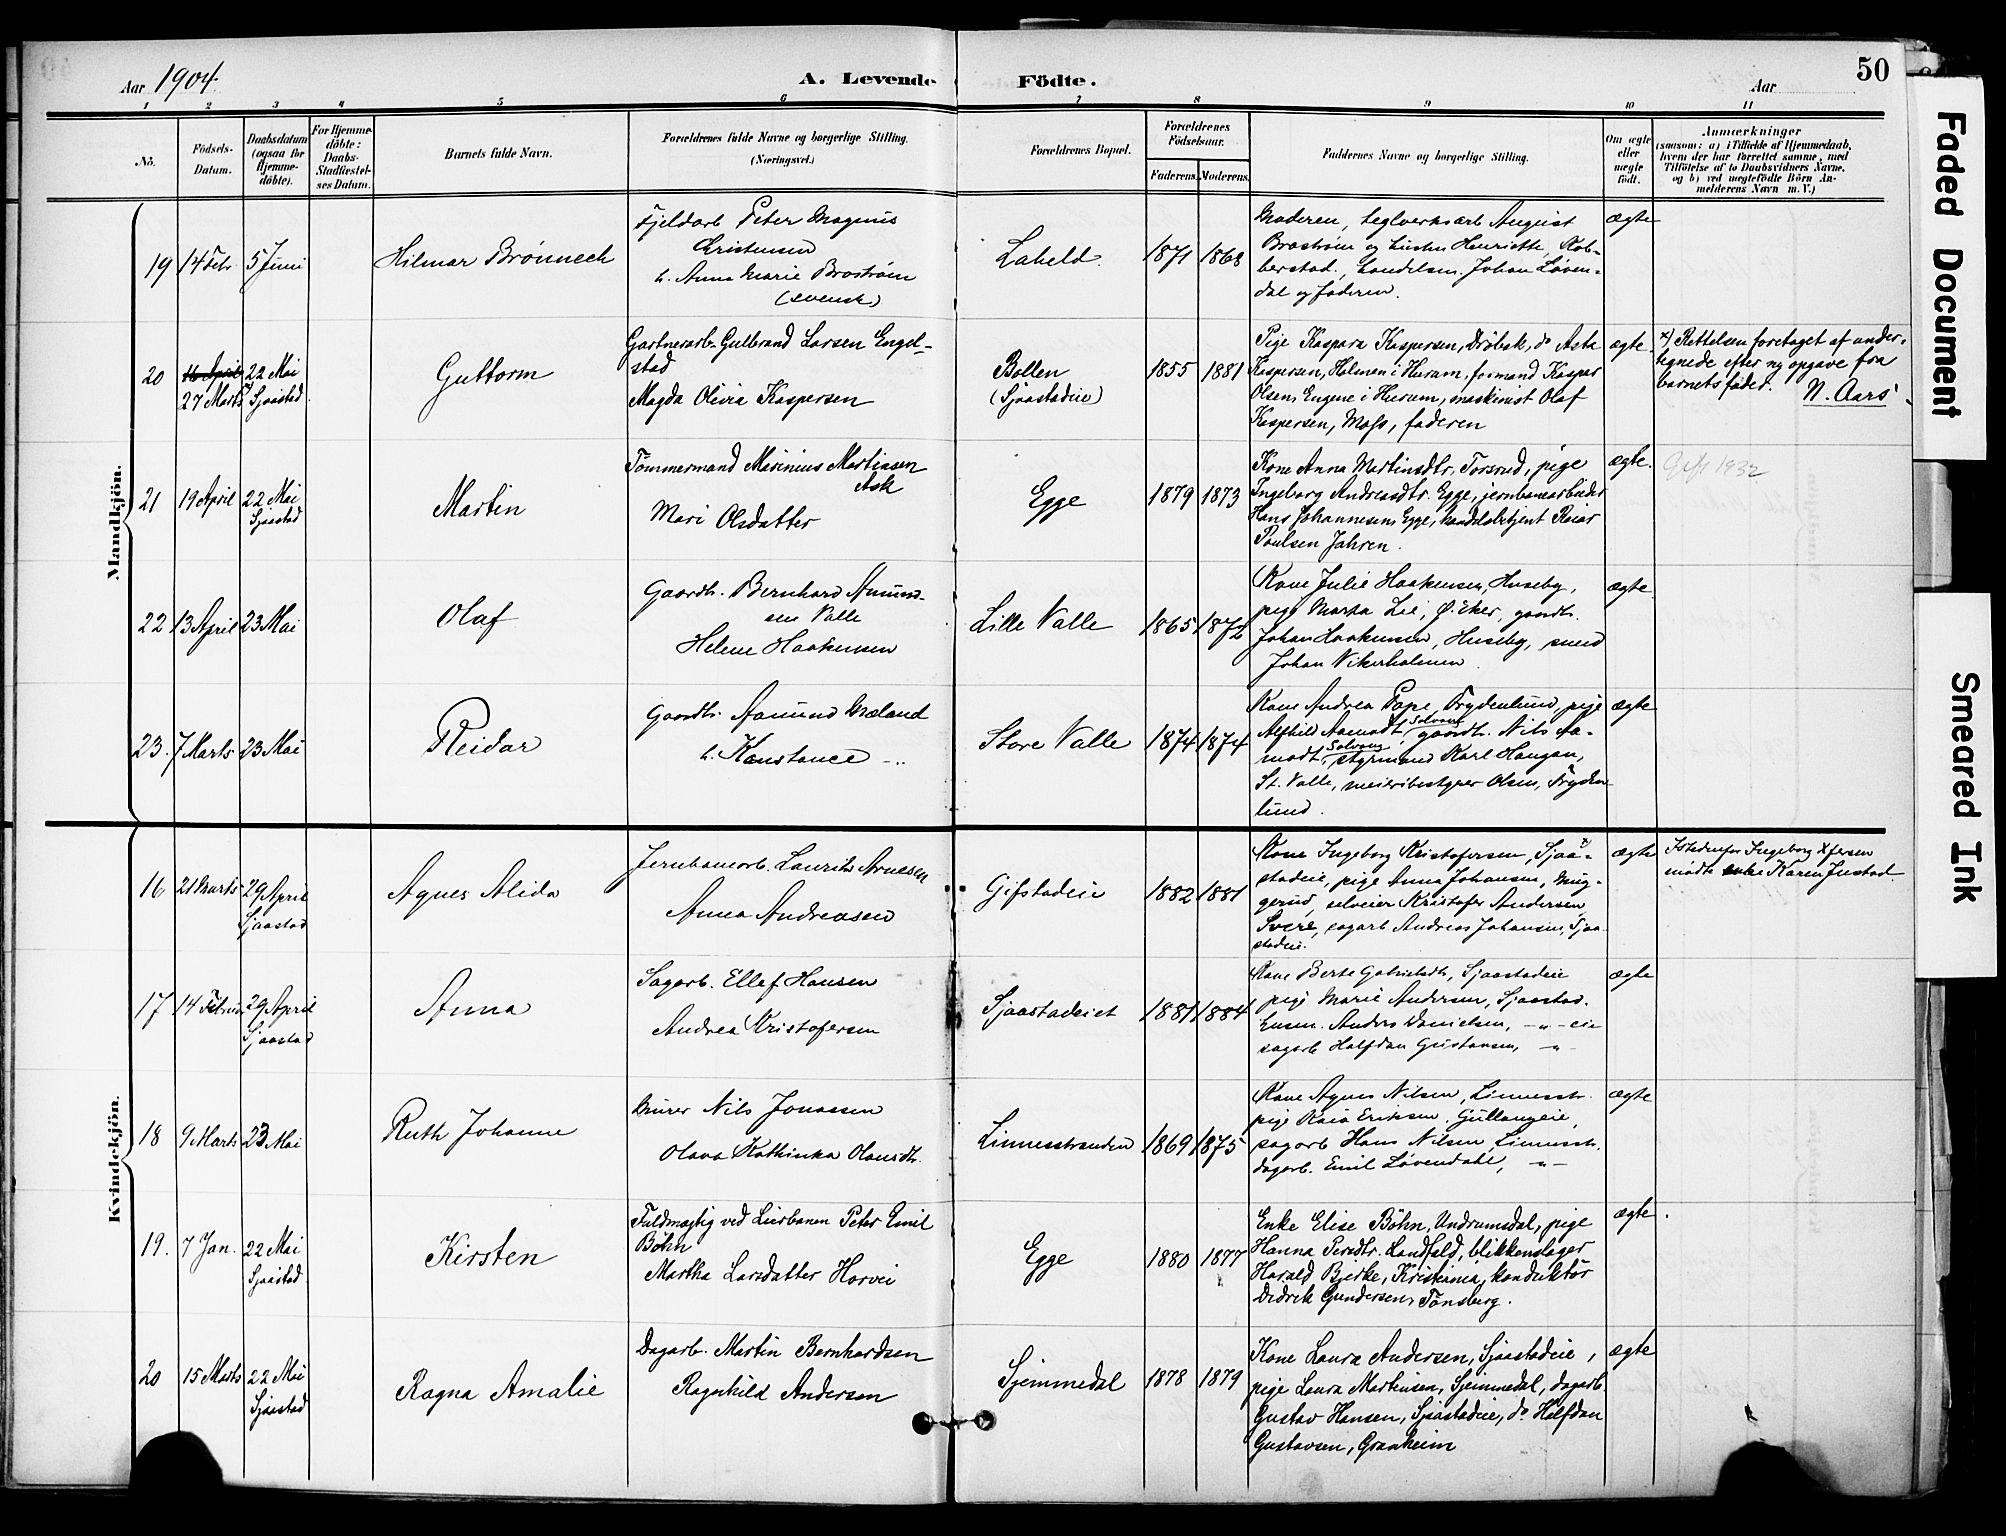 Aar 1904.
A. Levende Födte.
Aar
50
1 2 3 4 5 6 7 8 9 10 11
No.
Födsels-
Datum.
Daabsdatum
(ogsaa for
Hjemme-
döbte).
For Hjemme-
döbte:
Daabs-
Stadfæstel-
ses Datum.
Barnets fulde Navn.
Forældrenes fulde Navne og borgerlige Stilling.
(Næringsvei.)
Forældrenes Bopæl.
Forældrenes
Födselsaar.
Faderens. Moderens.
Faddernes Navne og borgerlige Stilling.
Om ægte
eller
uægte
født.
Anmærkninger
(saasom: a) i Tilfælde af Hjemmedaab,
hvem der har forrettet samme, med
Tilföielse af to Daabsvidners Navne,
og b) ved uægtefödte Börn An-
melderens Navn m. V.)
Mandkjön.
19
14 Febr.
5 Juni
Hilmar Brönnech
Fjeldarb Peter Magnus
Christensen
h. Anna Marie Broström
(svensk)
Laheld.
1871
1868
Moderen, teglverksarb August
Broström og hustru Henriette,
berstad., handelsm. Johan Løven-
dal og faderen.
ægte
20
16 April
27 Marts
22 Mai
Sjaastad.
Guttorm
Gartnerarb. Gulbrand Larsen Engel-
stad
Magda Olivia Kaspersen
Bollen
(Sjaastadeie)
1855
1881
Pige Kaspara Kaspersen, Drøbak, do Asta
Kaspersen, Holmen i Hurum, formand Kaspar
Olsen, Engene i Hurum, maskinist Olaf
Kaspersen, Moss, faderen
ægte.
x) Rettelsen foretaget af under-
tegnede efter ny opgave fra
barnets fader. N. Aars
21
19 April
22 Mai
Sjaastad
Martin
Tømmermand Marinius Martinsen
Ask
Mari Olsdatter
Egge
1879
1873
Kone Anna Martinsdtr. Torsrud, pige
Ingeborg Andreasdtr. Egge, jernbanearbeider
Hans Johannesen, Egge, handelsbetjent Reiar
Paulsen Jahren.
ægte.
Gift 1932
22
13 April
23 Mai
Olaf
Gaardb. Bernhard Amund-
sen Valle
Helene Haakensen
Lille Valle
1865
1872
Kone Julie Haakensen, Huseby,
pige Marta Lie, Ø. Eker, gaardb.
Johan Haakensen, Huseby, smed
Johan Vikerholmen
ægte
23.
7 Marts
23 Mai
Reidar
Gaardb. Aamund Mæland
h. Konstance -"-
Store Valle
1874
1874
Kone Andrea Pape, Frydenlund, pige
Alfhild Aamodt, Solvang, gaardb. Nils Aa-
modt, Solvang, styrmand Karl Haugan,
St. Valle, meieribestyrer Olsen, Fryden-
lund.
ægte
Kvindekjön.
16
21 Marts
29 April
Sjaastad
Agnes Alida
Jernbanearb. Laurits Arnesen
Anna Andreasen
Gifstadeie
1882
1881
Kone Ingeborg Kristofersen, Sjaa-
stadeie, pige Anna Johansen, Mug-
gerud, selveier Kristofer Andersen
Svere, sagarb Andreas Johansen, Sjaa-
stadeie.
ægte
Istedenfor Ingeborg Xfersen
mødte enke Karen Justad.
17
14 Februar
29 April
Sjaastad
Anna
Sagarb. Ellef Hansen
Andrea Kristofersen
Sjaastadeiet
1881
1884
Kone Berte Gabrielsdtr, Sjaastadeie
pige Marie Andersen, Sjaastad.
Ensm. Anders Danielsen, -"- eie
sagarb Halfdan Gustavsen, -"-
ægte
18
9 Marts
23 Mai
Ruth Johanne
Murer Nils Jonassen
Olava Kathinka Olausdtr.
Linnesstranden
1869
1875
Kone Agnes Nilsen, Linnesstr.
pige Kaia Eriksen, Gullaugeie,
sagarb Hans Nilsen, Linnesstr.
dagarb. Emil Løvendahl, -"-
ægte
19.
7 Jan.
22 Mai
Sjaastad
Kirsten
Fuldmægtig ved Lierbanen Peter Emil
Böhn
Martha Larsdatter Horvei
Egge
1880
1877
Enke Elise Böhn, Undrumsdal, pige
Hanna Persdtr. Landfald, blikkenslager
Harald Bjerke, Kristiania, konduktør
Didrik Gundersen, Tønsberg.
ægte
20
15 Marts
22 Mai
Sjaastad
Ragna Amalie
Dagarb. Martin Bernhardsen
Ragnhild Andersen
Sjemmedal
1878
1879
Kone Laura Andersen, Sjaastadeie,
pige Laura Martinsen, Sjemmedal, dagarb.
Gustav Hansen, Sjaastadeie, do Halfdan
Gustavsen, Granheim
ægte
Faded Document
Smeared Ink